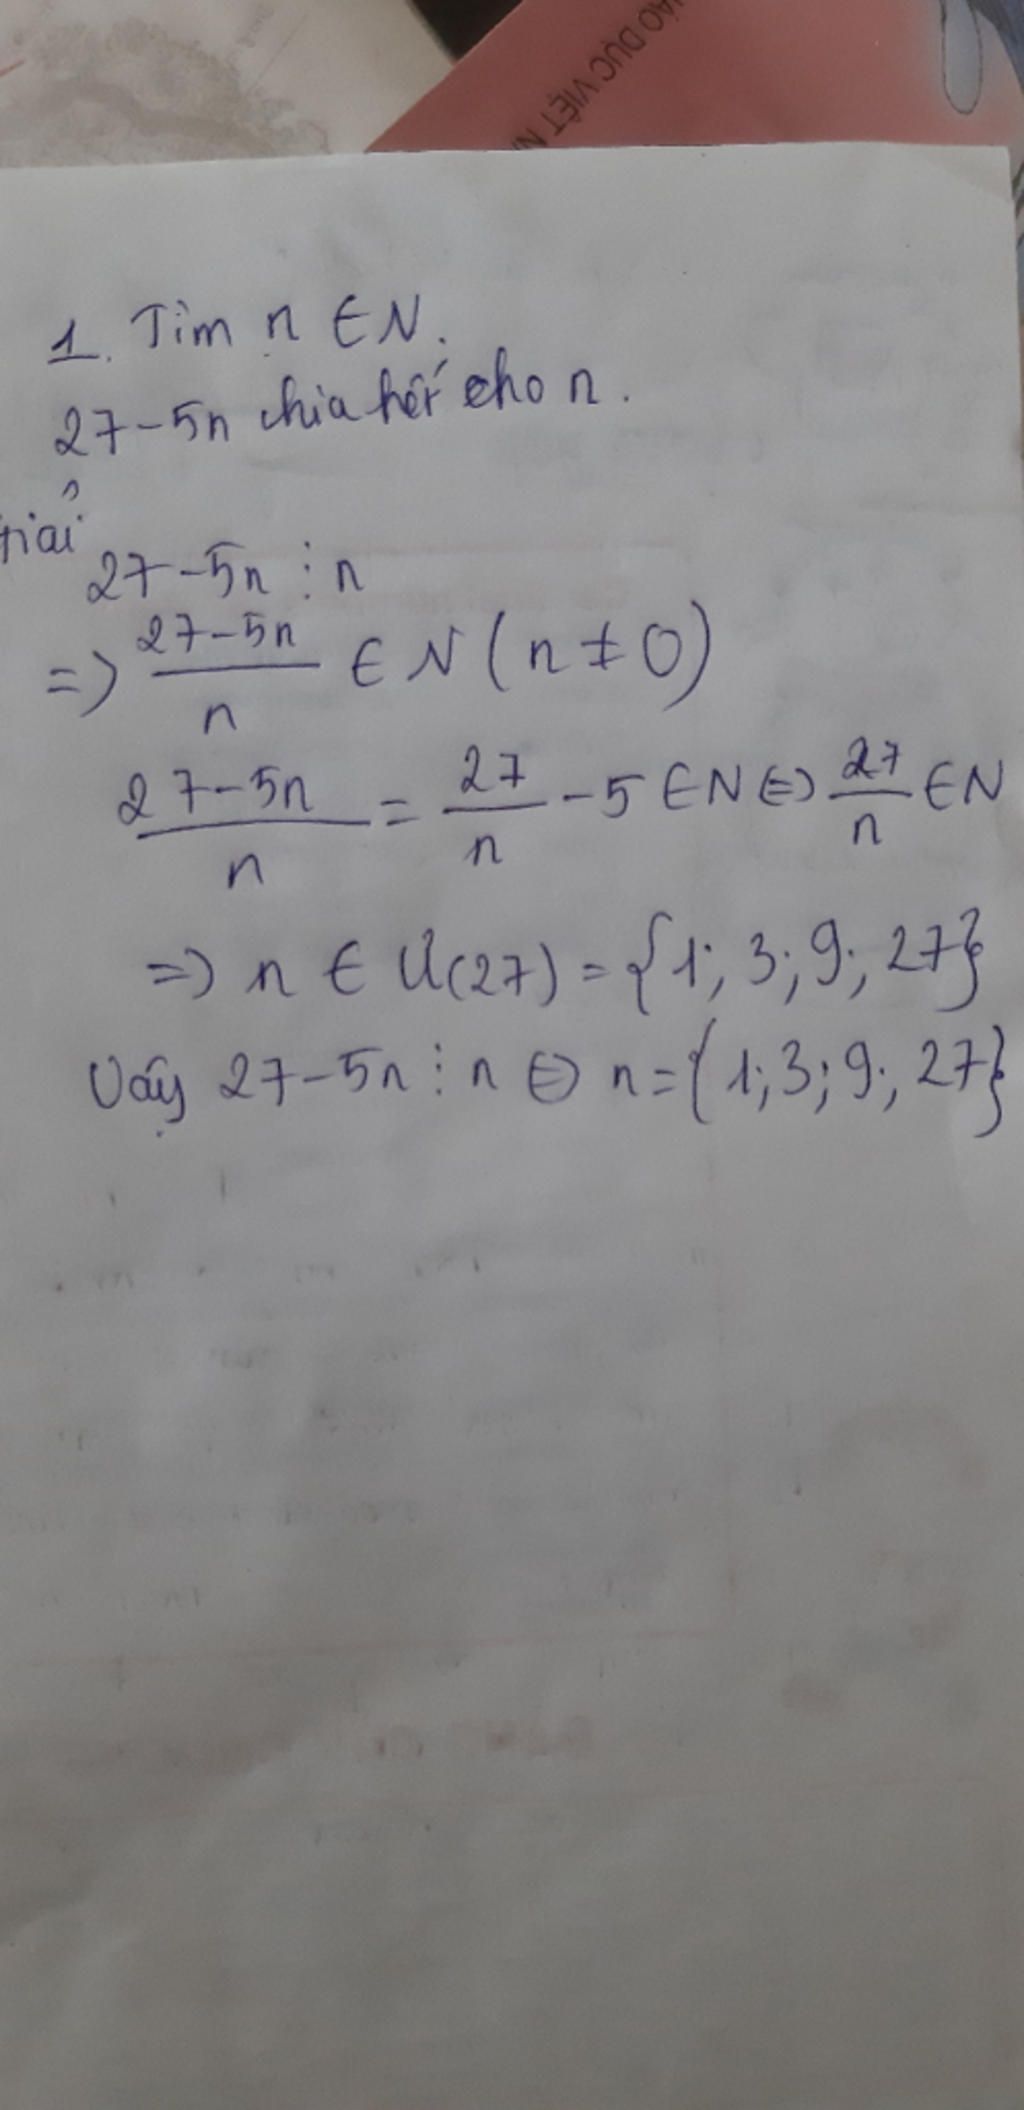 ÁO DỤC VIỆT N
1. Tìm n ∈ N.
27-5n chia hết cho n.
Giải
27-5n ⋮ n
=> 27-5n/n ∈ N (n ≠ 0)
27-5n/n = 27/n - 5 ∈ N <=> 27/n ∈ N
=> n ∈ Ư(27) = {1; 3; 9; 27}
Vậy 27-5n ⋮ n <=> n = {1; 3; 9; 27}